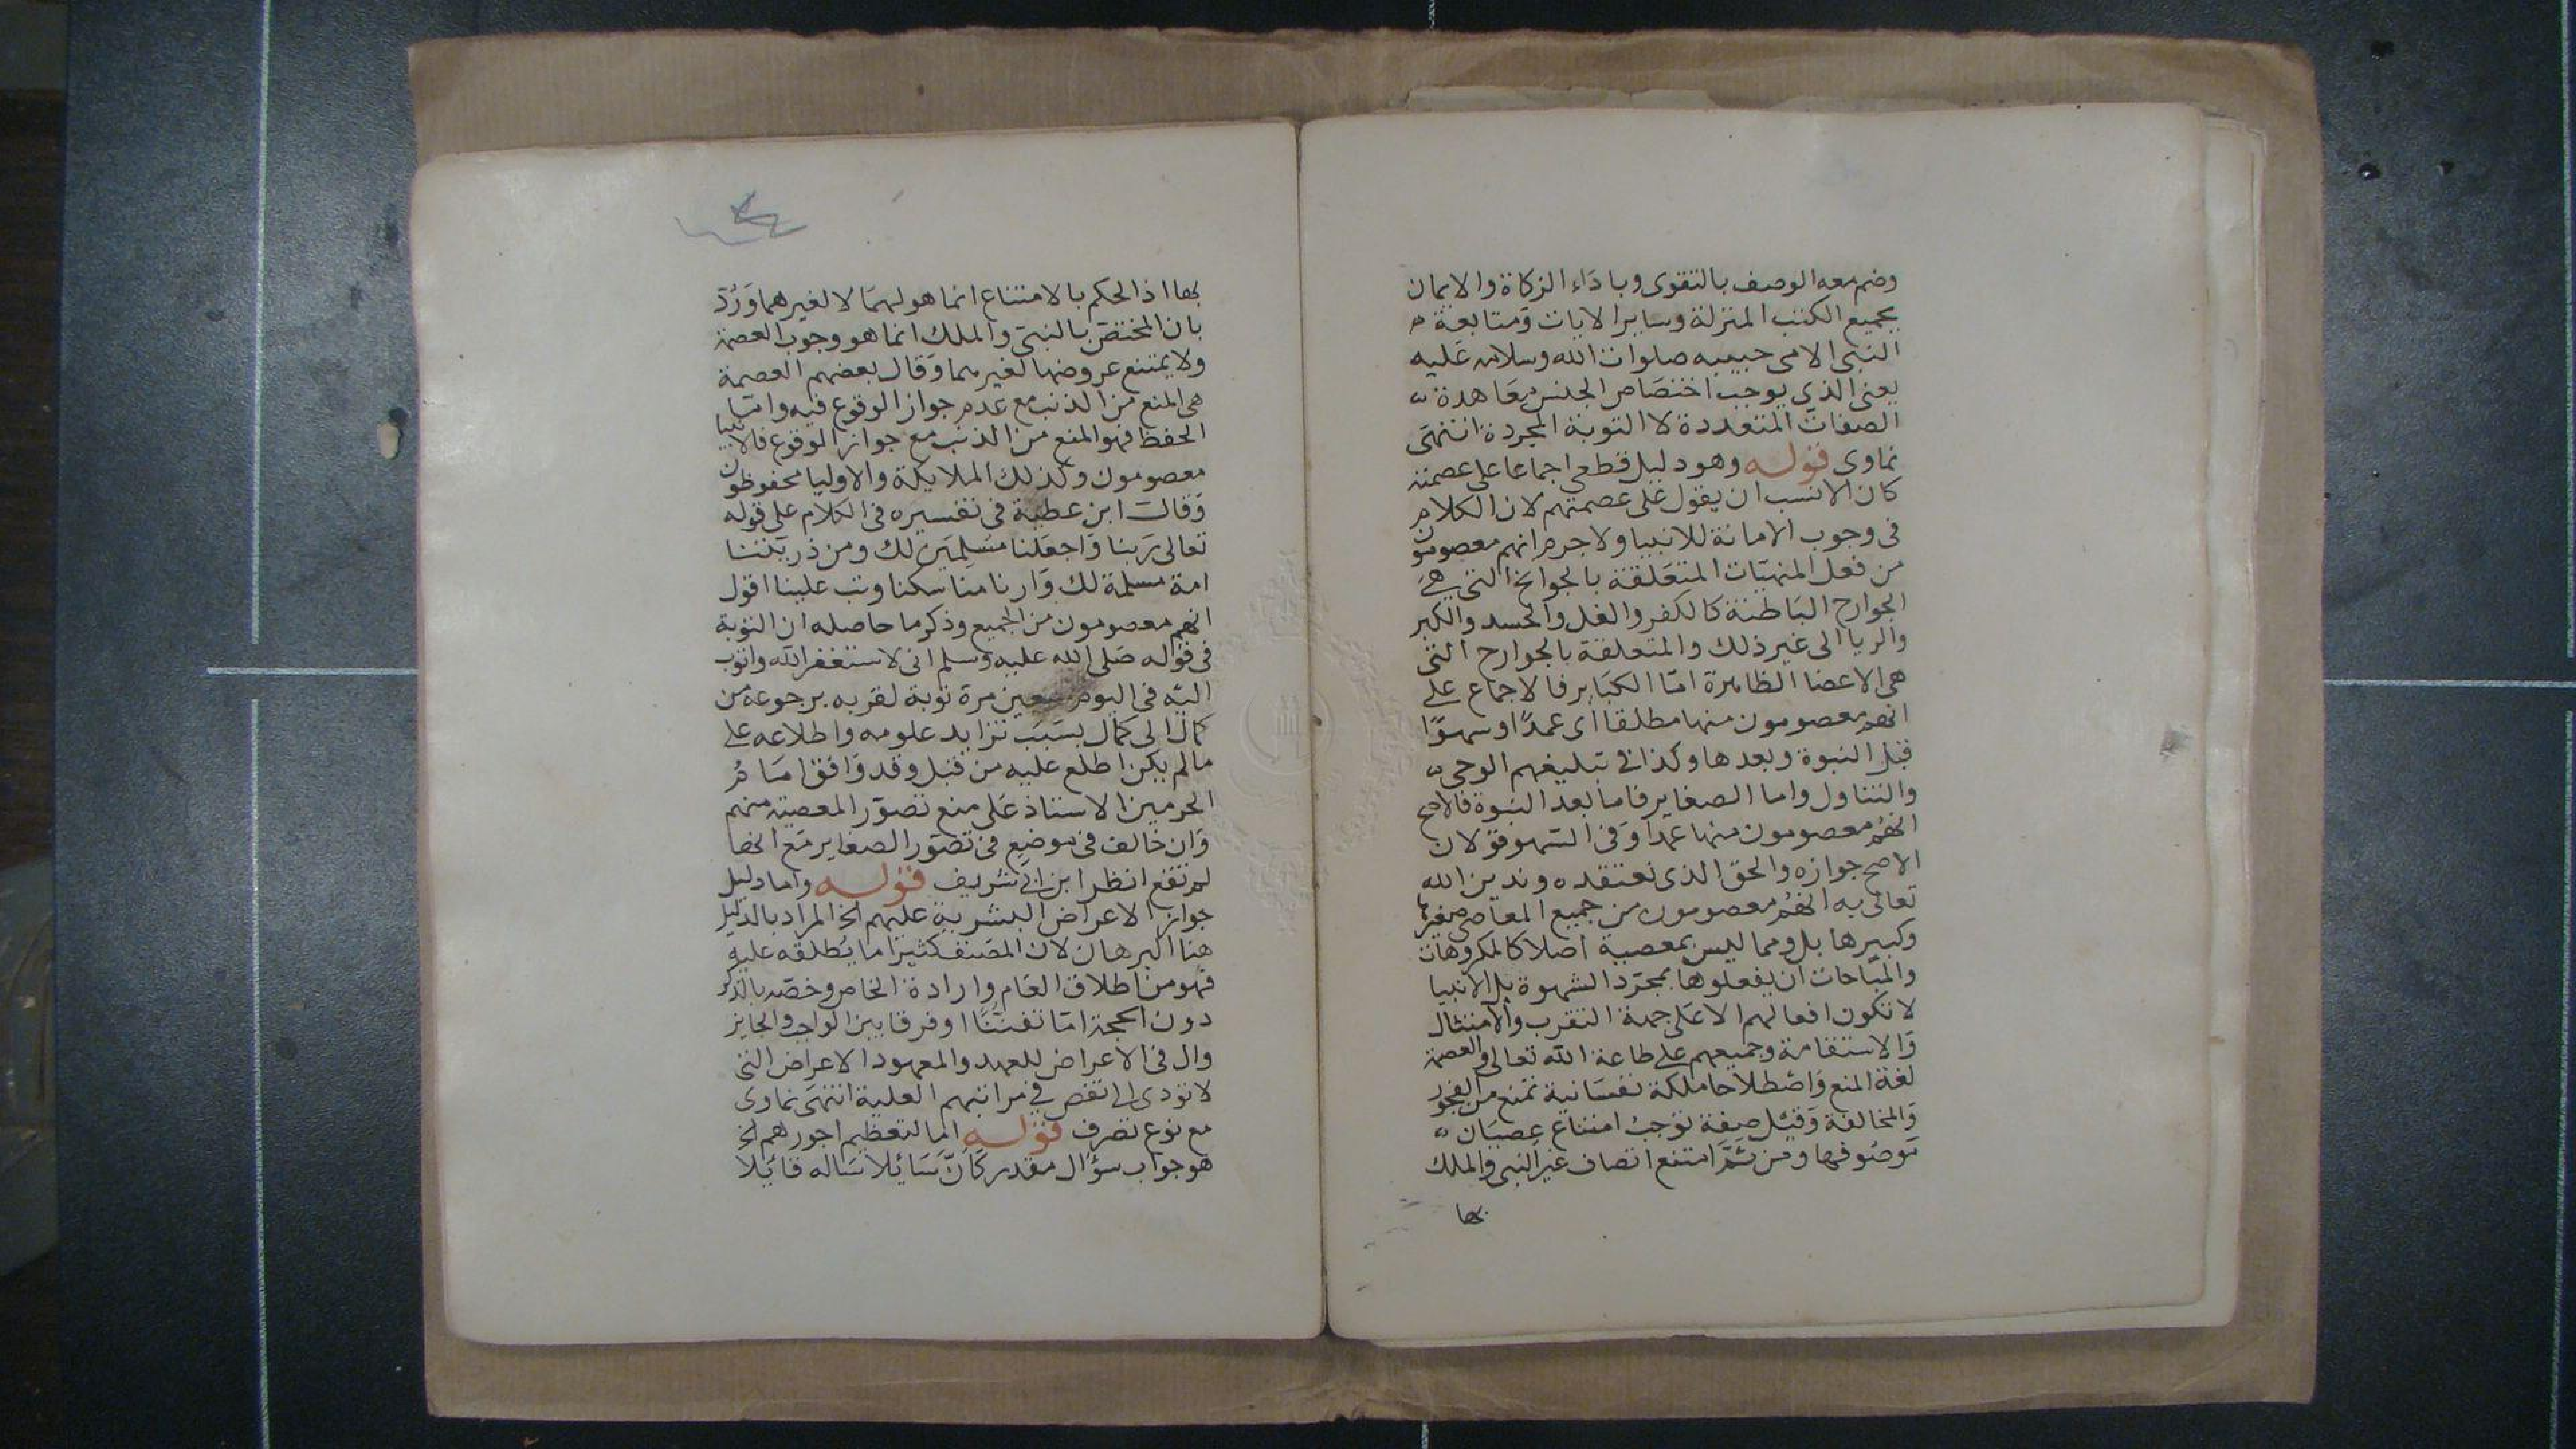 وضم معه الوصف بالتقوى وباداء الزكاة والايمان
بجميع الكتب المنزلة وساير الايات ومتابعة
النبى الامى حبيبه صلوات الله وسلامه عليه
يعنى الذي يوجب اختصاص الجنس معاهدة
الصفات المتعددة لا التوبة المجردة انتهى
نماوى قوله وهو دليل قطعى اجماعا على عصمته
كان الانسب ان يقول على عصمتهم لان الكلام
فى وجوب الامانة للانبيا ولا جرم انهم معصومون
من فعل المنهيات المتعلقة بالجوانح التى هي
الجوارح الباطنة كالكفر والغل والحسد والكبر
والريا الى غير ذلك والمتعلقة بالجوارح التى
هى الاعضا الظاهرة اما الكباير فالاجماع على
انهم معصومون منها مطلقا اى عمدًا او سهوًا
قبل النبوة وبعدها وكذا فى تبليغهم الوحى
والتناول واما الصغاير فاما بعد النبوة فالاصح
انهم معصومون منها عمدا وفى السهو قولان
الاصح جوازه والحق الذى نعتقده وندين الله
تعالى به انهم معصومون من جميع المعاصى صغيرها
وكبيرها بل ومما ليس بمعصية اصلا كالمكروهات
والمباحات ان يفعلوها بمجرد الشهوة بل الانبيا
لا تكون افعالهم الا على جهة التقرب والامتثال
والاستقامة وجميعهم على طاعة الله تعالى والعصمة
لغة المنع واصطلاحا ملكة نفسانية تمنع من الفجور
والمخالفة وقيل صفة توجب امتناع عصيان
موصوفها ومن ثمَّ امتنع اتصاف غير النبى والملك
بها
بها اذ الحكم بالامتناع انما هو لهما لا لغيرهما ورُدّ
بان المختص بالنبيّ والملك انما هو وجوب العصمة
ولا يمتنع عروضها لغيرهما وقال بعضهم العصمة
هى المنع من الذنب مع عدم جواز الوقوع فيه واما
الحفظ فهو المنع من الذنب مع جواز الوقوع فالانبيا
معصومون وكذلك الملايكة والاوليا محفوظون
وقال ابن عطية فى تفسيره فى الكلام على قوله
تعالى ربنا واجعلنا مسلمين لك ومن ذريتنا
امة مسلمة لك وارنا مناسكنا وتب علينا اقول
انهم معصومون من الجميع وذكر ما حاصله ان التوبة
فى قوله صلى الله عليه وسلم انى لاستغفر الله واتوب
اليه فى اليوم سبعين مرة توبة لقربه برجوعه من
كمال الى كمال بسبب تزايد علومه واطلاعه على
مالم يكن اطلع عليه من قبل وقد وافق امام
الحرمين الاستاذ على منع تصوّر المعصية منهم
وان خالف فى موضع فى تصور الصغاير مع انها
لم تقع انظر ابن ابى شريف قوله واما دليل
جواز الاعراض البشرية عليهم الخ المراد بالدليل
هنا البرهان لان المصنف كثيرا ما يُطلقه عليه
فهو من اطلاق العام وارادة الخاص وخصه بالذكر
دون الحجة اما تفنّنًا او فرقا بين الواجب والجايز
وال فى الاعراض للعهد والمعهود الاعراض التى
لا تودى الى نقص في مراتبهم العلية انتهى نماوى
مع نوع تصرف قوله اما لتعظيم اجورهم الخ
هو جواب سؤال مقدر كأنّ سَائلا ساله قائلا